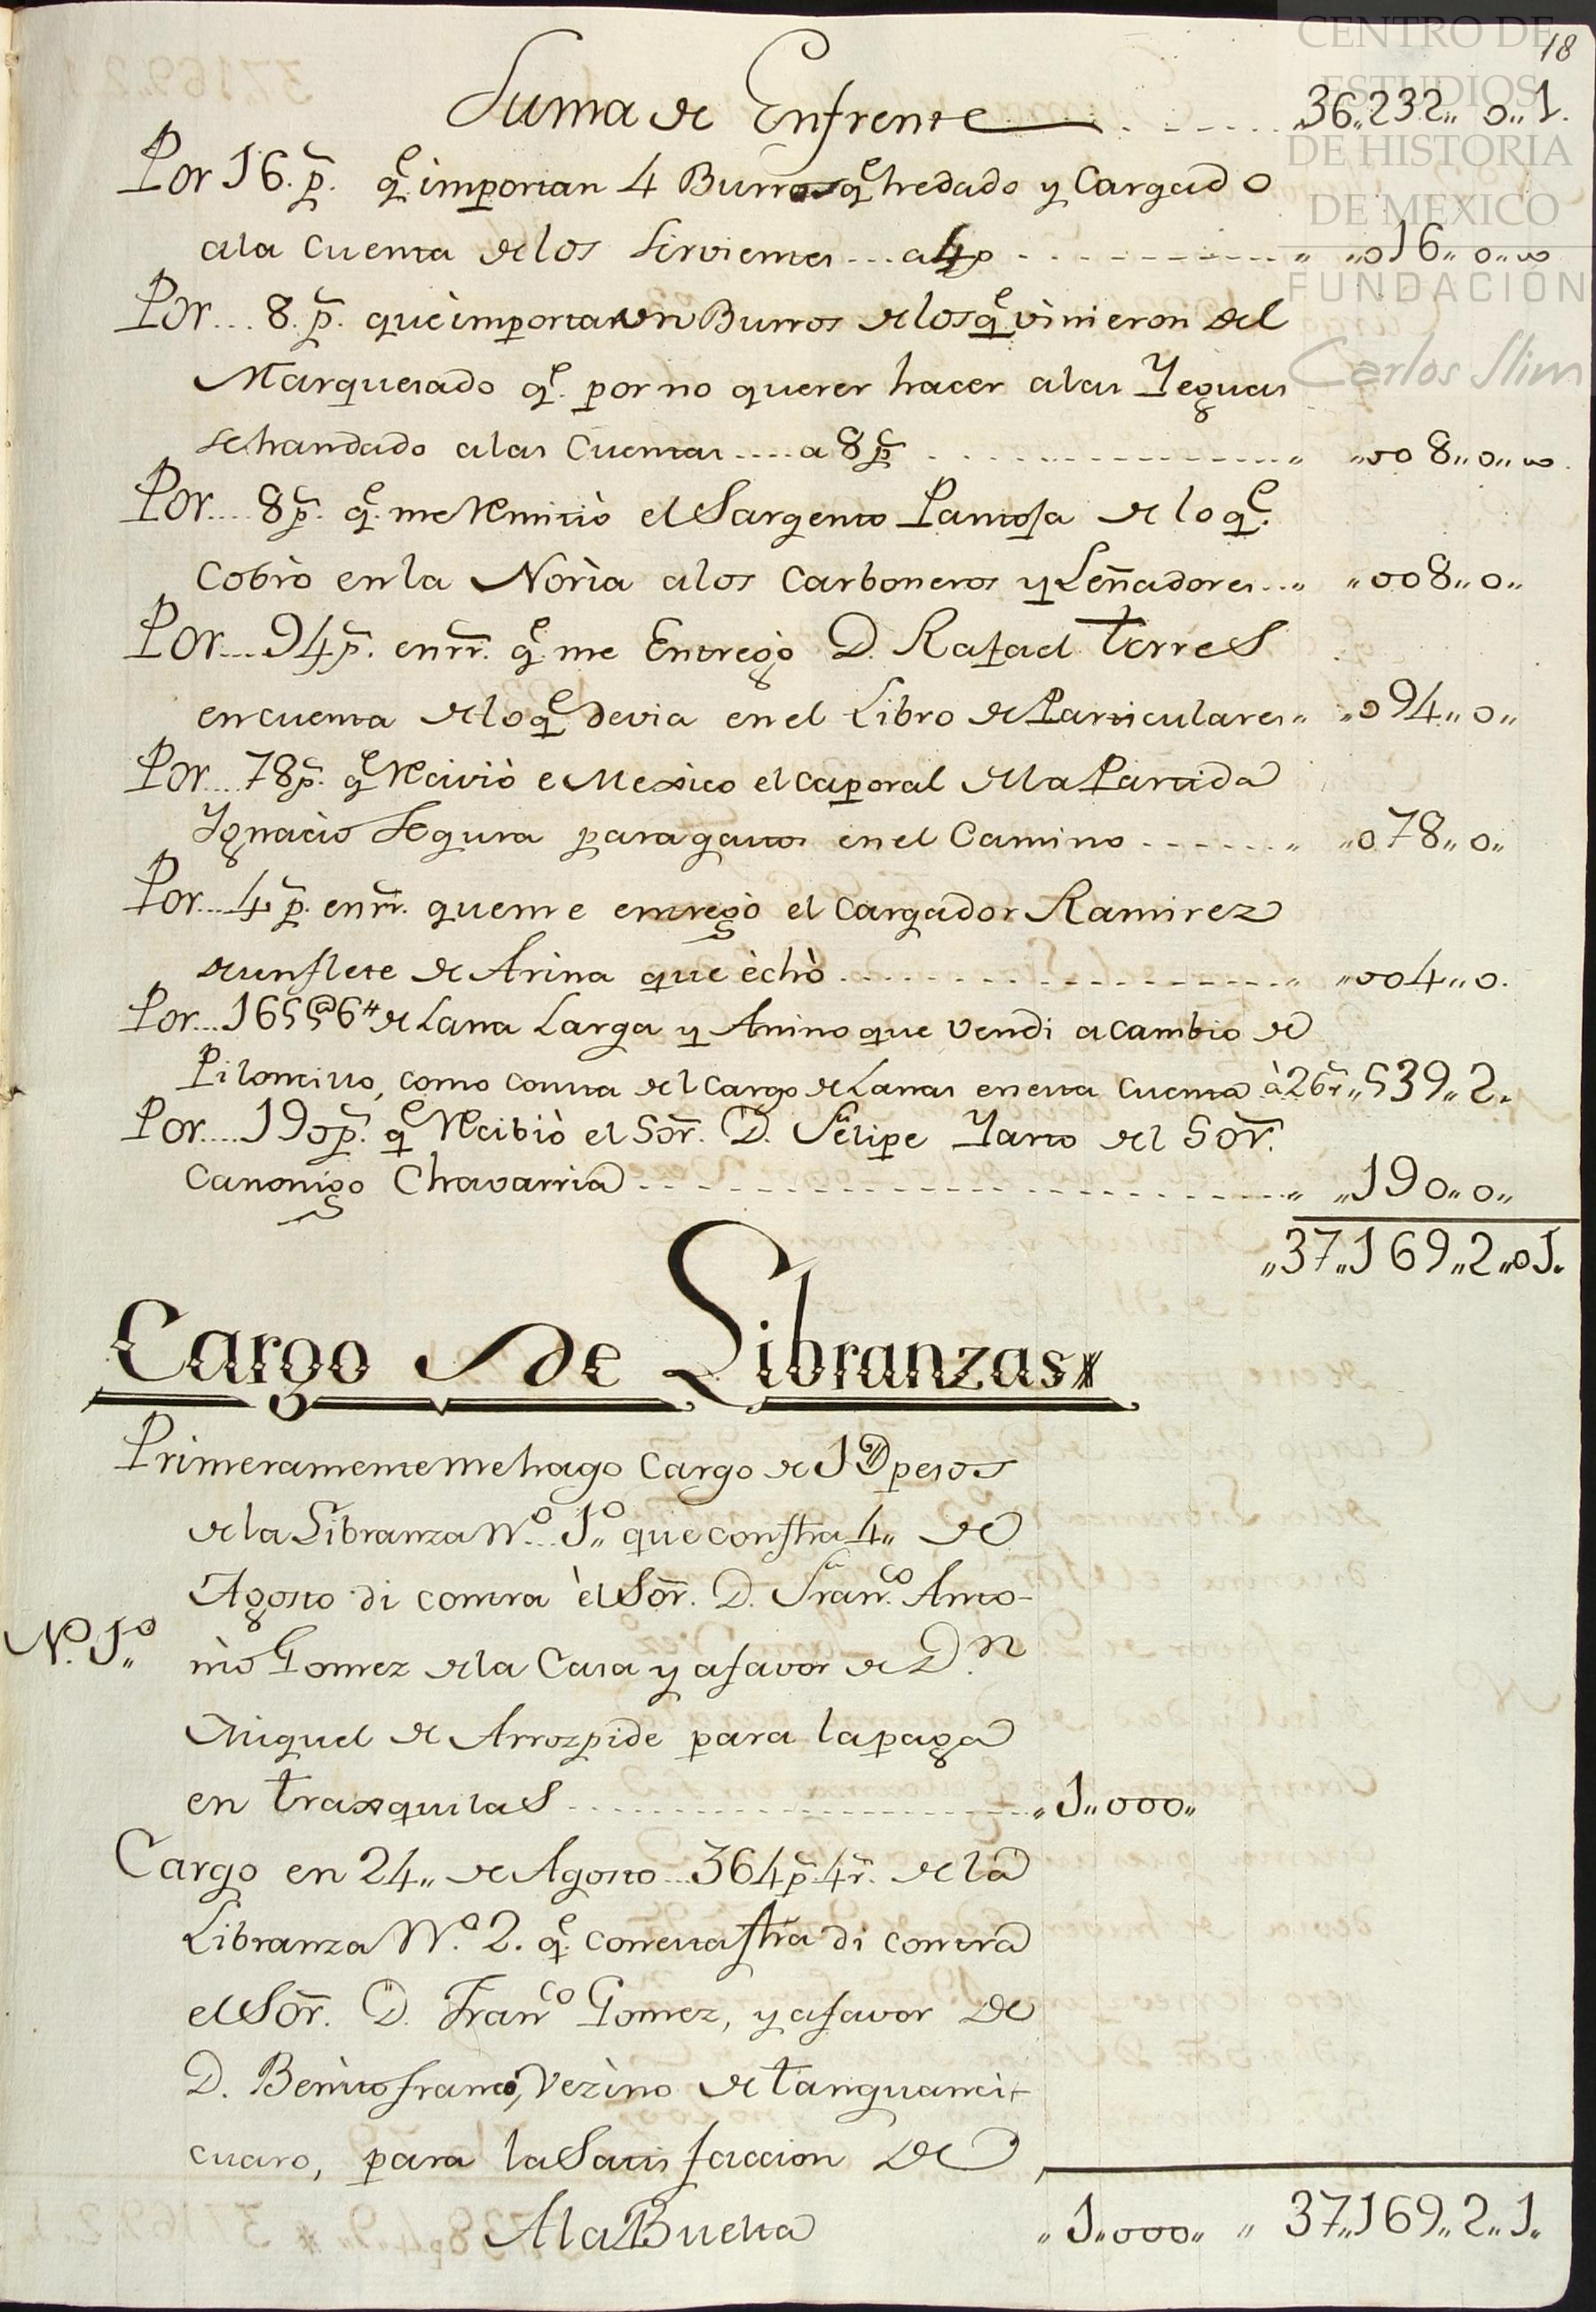 CENTRO DE
ESTUDIOS
DE HISTORIA
DE MEXICO
FUNDACIÓN
Carlos Slim
18
Suma de Enfrente 36,,232,, 0,,1.
Por 16. p.s q.e importan 4 Burros q.e he dado y Cargado
a la Cuenta de los Sirvientes ... a 4 p ,,016,,0,,00
Por... 8. p.s que importa un Burros de los q.e vinieron del
Marquesado q.e por no querer hacer a las Yeguas
se han dado a las Cuentas .... a 8 p.s ,,008,,0,,00.
Por.... 8 p.s q.e me Remitiò el Sargento Pantoja de lo q.e
Cobrò en la Norìa a los Carboneros y Leñadores... ,,008,,0,,
Por.... 94 p.s en rr.s q.e me Entregò D. Rafael torres
en cuenta de lo q.e devia en el Libro de Particulares ,,094,,0,,
Por... 78 p.s q.e Reciviò e Mexico el caporal de la Partida
Ygnacio Segura para gastos en el Camino ,,078,,0,,
Por... 4 p.s en rr.s que me entregò el Cargador Ramirez
de un flete de Arina que èchò ,,004,,0.
Por... 165 5@6 tt de Lana Larga y Anino que vendi a cambio de
Piloncillo, como consta del Cargo de Lanas en esta Cuenta à 26 r.s ,,539,,2.
Por.... 190 p.s q.e Recibiò el Sõr. D. Felipe Yarto del Sõr.
Canonigo Chavarria ,,190,,0,,
,,37,,169,,2,,01.
Cargo de Libranzas
Primeramente me hago Cargo de 1D pesos
de la Libranza N.o 1.o que con ffra 4,, de
Agosto di contra èl Sõr. D. Fran.co Anto-
N.o 1.o nio Gomez de la Casa y a favor de D.n
Miguel de Arrozpide para la paga
en traxquilas ,,1,,000,,
Cargo en 24,, de Agosto... 364 p.s 4 r.s de la
Libranza N.o 2. q.e con esta ffra di contra
el Sõr. D. Fran.co Gomez, y a favor de
D. Benito franco, Vezino de tanguanci-
cuaro, para la Satisfaccion de
A la Buelta ,,1,,000,, ,, 37,,169,,2,,1,,